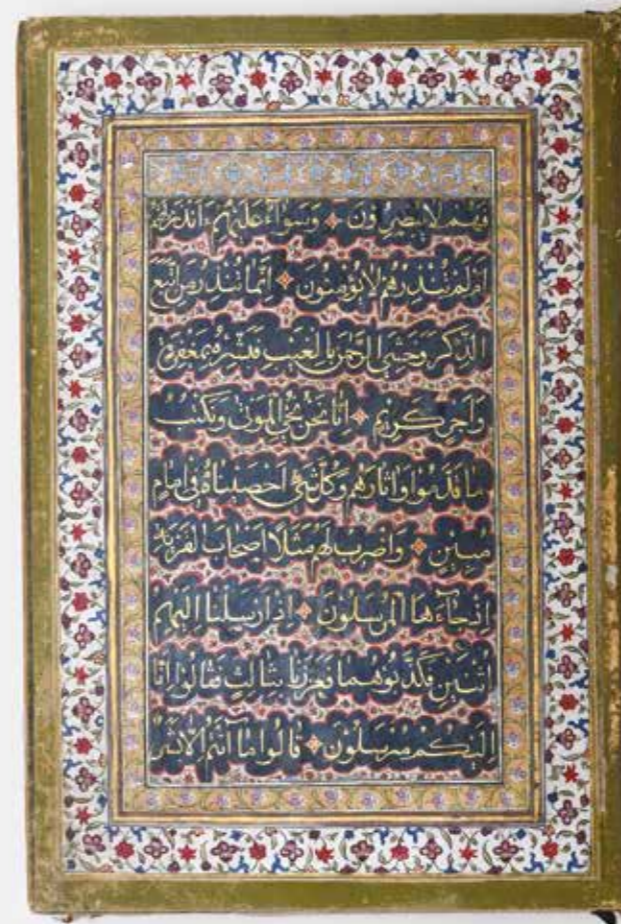 فَهُمْ لَا يُبْصِرُونَ ۞ وَسَوَآءٌ عَلَيْهِمْ ءَاَنْذَرْتَهُمْ
اَمْ لَمْ تُنْذِرْهُمْ لَا يُؤْمِنُونَ ۞ اِنَّمَا تُنْذِرُ مَنِ اتَّبَعَ
الذِّكْرَ وَخَشِىَ الرَّحْمٰنَ بِالْغَيْبِ فَبَشِّرْهُ بِمَغْفِرَةٍ
وَاَجْرٍ كَرِيْمٍ ۞ اِنَّا نَحْنُ نُحْىِ الْمَوْتٰى وَنَكْتُبُ
مَا قَدَّمُوْا وَاٰثَارَهُمْ وَكُلَّ شَىْءٍ اَحْصَيْنَاهُ فِىْ اِمَامٍ
مُبِيْنٍ ۞ وَاضْرِبْ لَهُمْ مَثَلًا اَصْحَابَ الْقَرْيَةِ
اِذْ جَآءَهَا الْمُرْسَلُوْنَ ۞ اِذْ اَرْسَلْنَا اِلَيْهِمُ
اثْنَيْنِ فَكَذَّبُوْهُمَا فَعَزَّزْنَا بِثَالِثٍ فَقَالُوْا اِنَّا
اِلَيْكُمْ مُرْسَلُوْنَ ۞ قَالُوْا مَا اَنْتُمْ اِلَّا بَشَرٌ